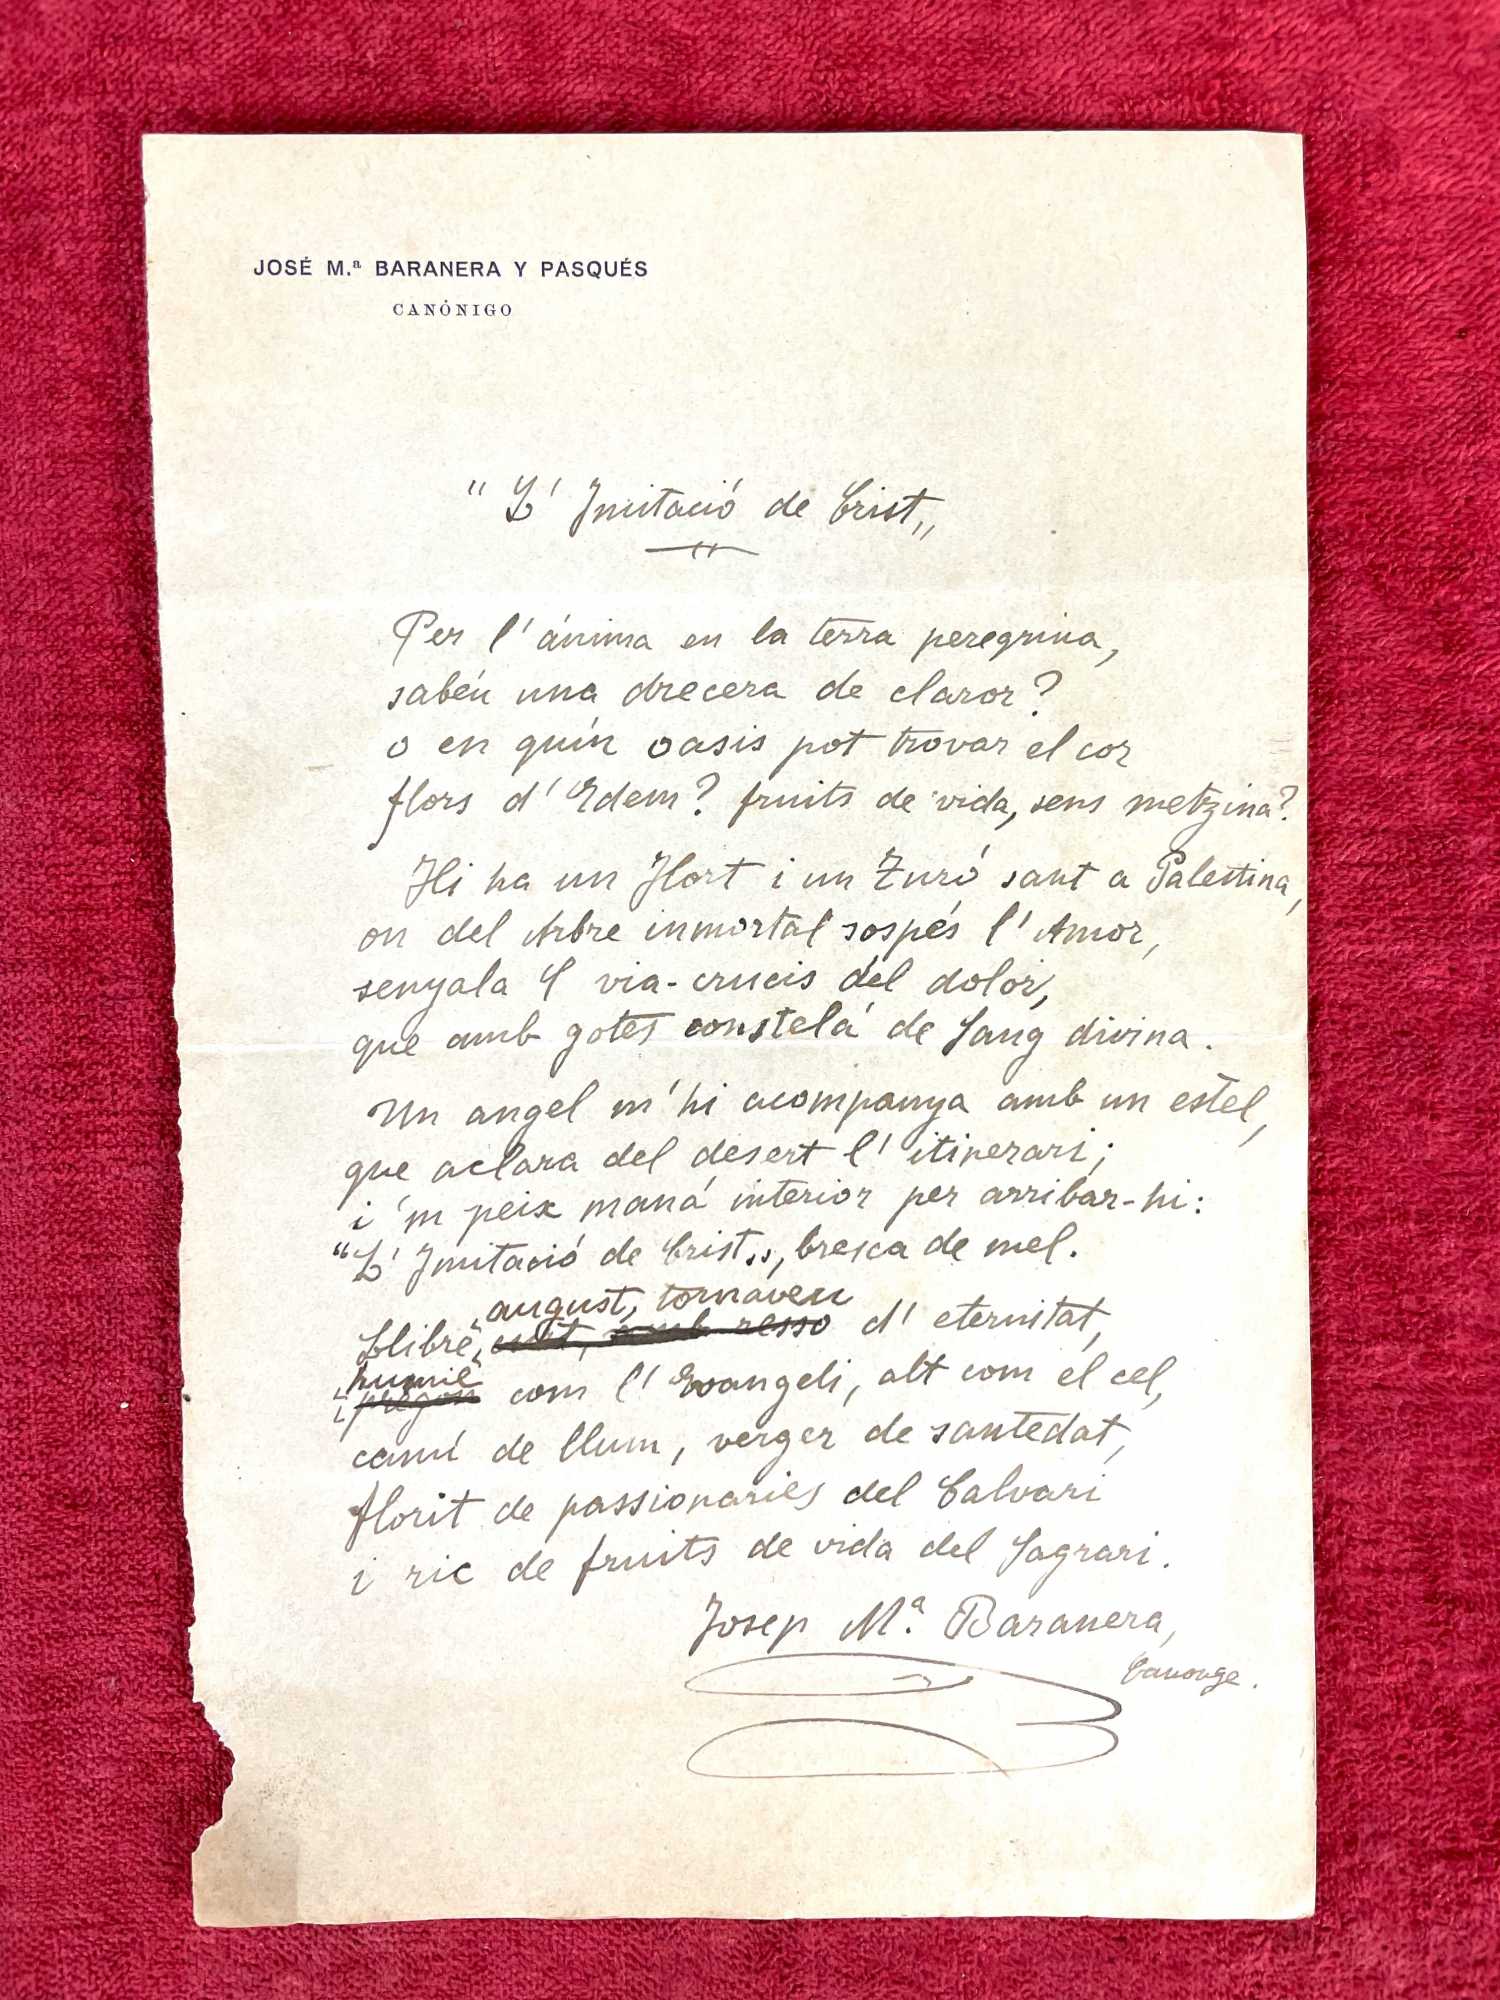 JOSÉ M.ª BARANERA Y PASQUÉS
CANÓNIGO
"L' Imitació de Crist„
Per l' ánima en la terra peregrina,
sabéu una drecera de claror?
o en quín oasis pot trovar el cor
flors d' Edem? fruits de vida, sens metzina?
Hi ha un Hort i un Turó sant a Palestina,
on del Arbre inmortal sospés l' Amor,
senyala 'l via-crucis del dolor,
que amb gotes constelá de Sang divina.
Un angel m' hi acompanya amb un estel,
que aclara del desert l' itinerari;
i 'm peix maná interior per arribar-hi:
"L' Imitació de Crist„, bresca de mel.
august, tornaveu
Llibre, amb resso d' eternitat,
humil
i pregon com l' Evangeli, alt com el cel,
camí de llum, verger de santedat,
florit de passionaries del Calvari
i ric de fruits de vida del Sagrari.
Josep Mª. Baranera,
Canonge.